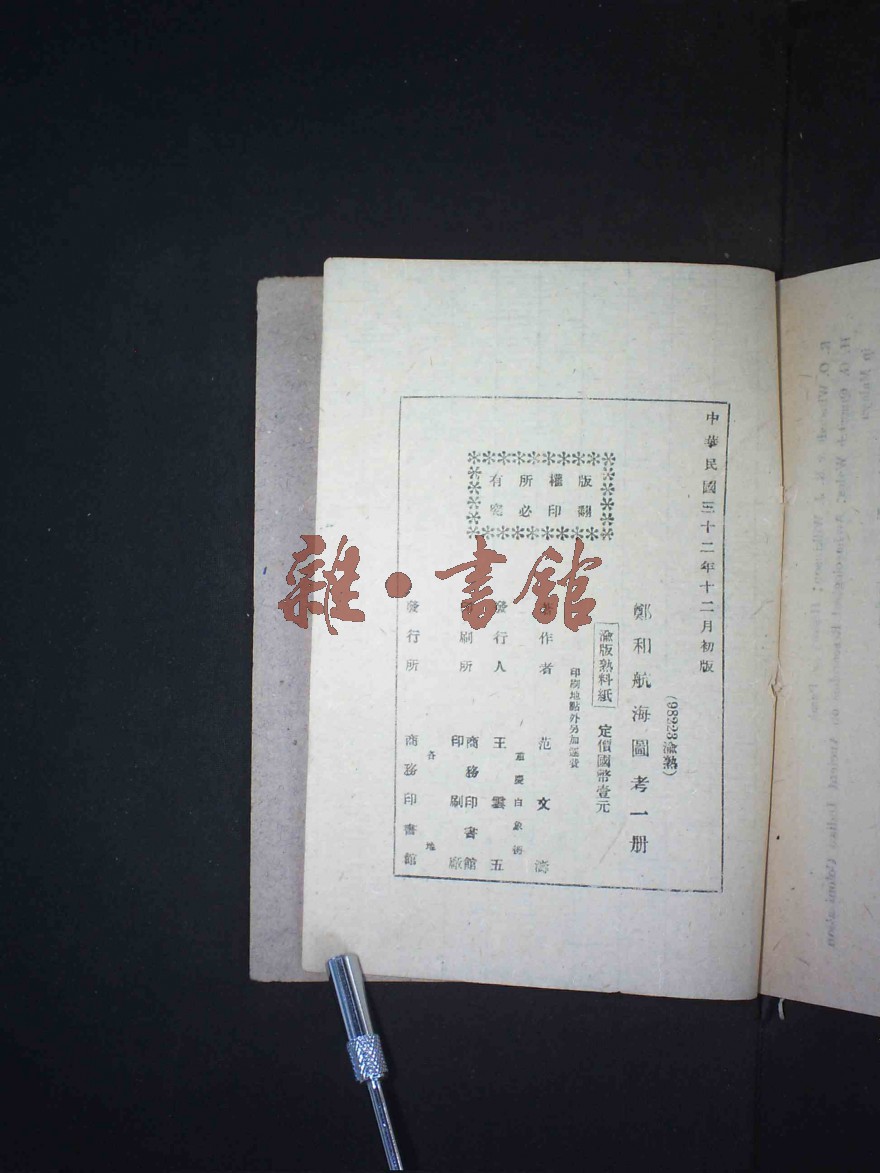 中華民國三十二年十二月初版
(98223渝熟)
鄭和航海圖考一册
渝版熟料紙
定價國幣壹元
印刷地點外另加運費
版權所有
翻印必究
著作者 范文濤
重慶白象街
發行人 王雲五
印刷所 商務印書館
印刷廠
發行所 各地
商務印書館
雜·書館